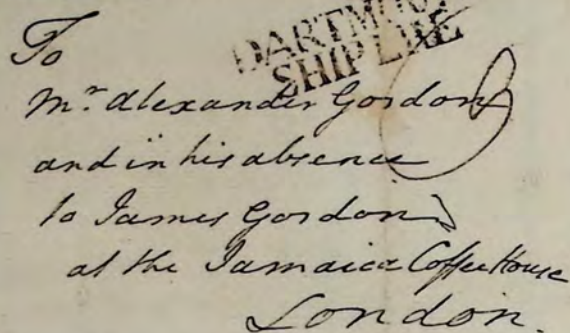 To
DARTMOUTH
SHIP LRE
Mr Alexander Gordon
and in his absence
to James Gordon
at the Jamaica Coffee House
London.